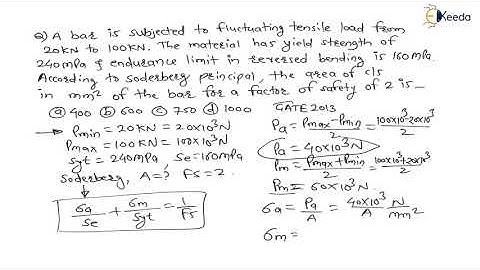 Q) A bar is subjected to fluctuating tensile load from
20KN to 100KN. The material has yield strength of
240mpa & endurance limit in reversed bending is 160mpa.
According to soderberg principal, the area of c/s
in mm² of the bar for a factor of safety of 2 is—
ⓐ 400 ⓑ 600 ⓒ 750 ⓓ 1000
GATE 2013
→ Pmin = 20KN = 20×10³N
Pmax = 100KN = 100×10³N
Syt = 240mpa Se = 160mpa
Soderberg, A=? FS=2.
6a/Se + 6m/Syt = 1/FS
Pa = Pmax-Pmin/2 = 100×10³-20×10³/2
Pa = 40×10³N
Pm = Pmax+Pmin/2 = 100×10³+20×10³/2
Pm = 60×10³N.
6a = Pa/A = 40×10³/A N/mm²
6m =
Ekeeda